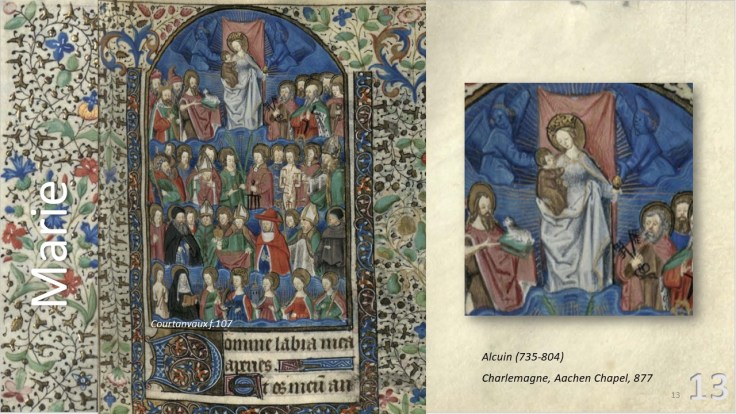 Marie
Courtanvaux f.107
Domine labia mea
aperies.
Et os meū an
Alcuin (735-804)
Charlemagne, Aachen Chapel, 877
13
13